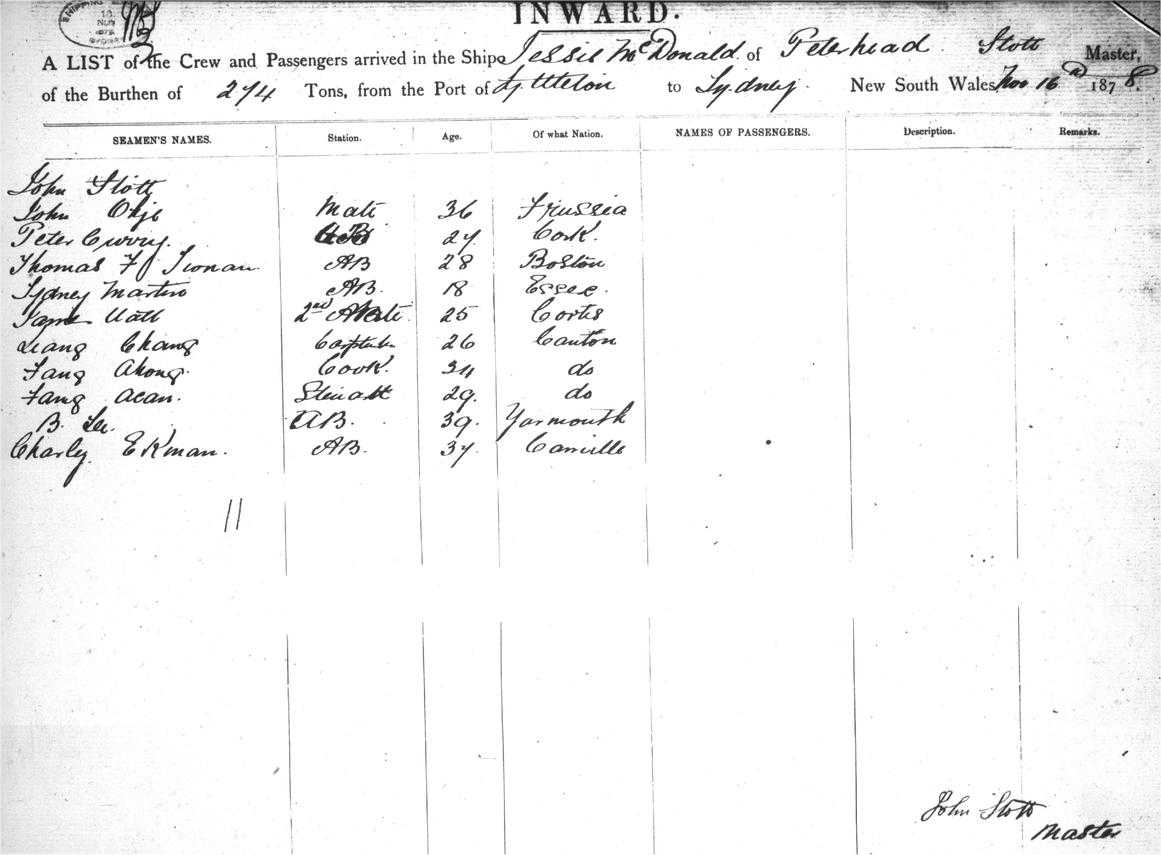 INWARD.
A LIST of the Crew and Passengers arrived in the Ship Jessie McDonald of Peterhead Stott Master,
of the Burthen of 274 Tons, from the Port of Lyttleton to Sydney New South Wales Nov 16 1878.
SEAMEN'S NAMES. Station. Age. Of what Nation. NAMES OF PASSENGERS. Description. Remarks.
John Stott
John Mate 36 Prussia
Peter 27. Cork.
Thomas AB 28 Boston
Sydney Martin AB. 18 Essex.
2nd Mate 25
Chang 26 Canton
Fang Ahong. Cook. 34 do
Fang Acan. 29. do
B. Lee. AB. 39. Yarmouth
Charley Ekman. AB. 37
11
John Stott
Master